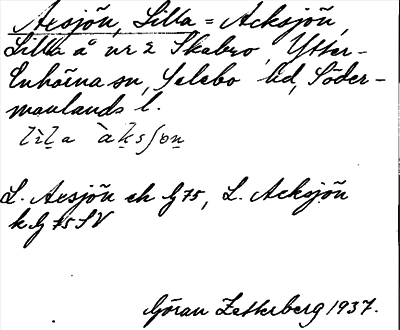 Axsjön, Lilla = Acksjön,
Lilla å nr 2 Skabro, Ytter-
Enhörna sn, Selebo hd, Söder-
manlands l.
L. Axsjön ek G 75, L. Acksjön
k G 75 SV
Göran Zetterberg 1937.